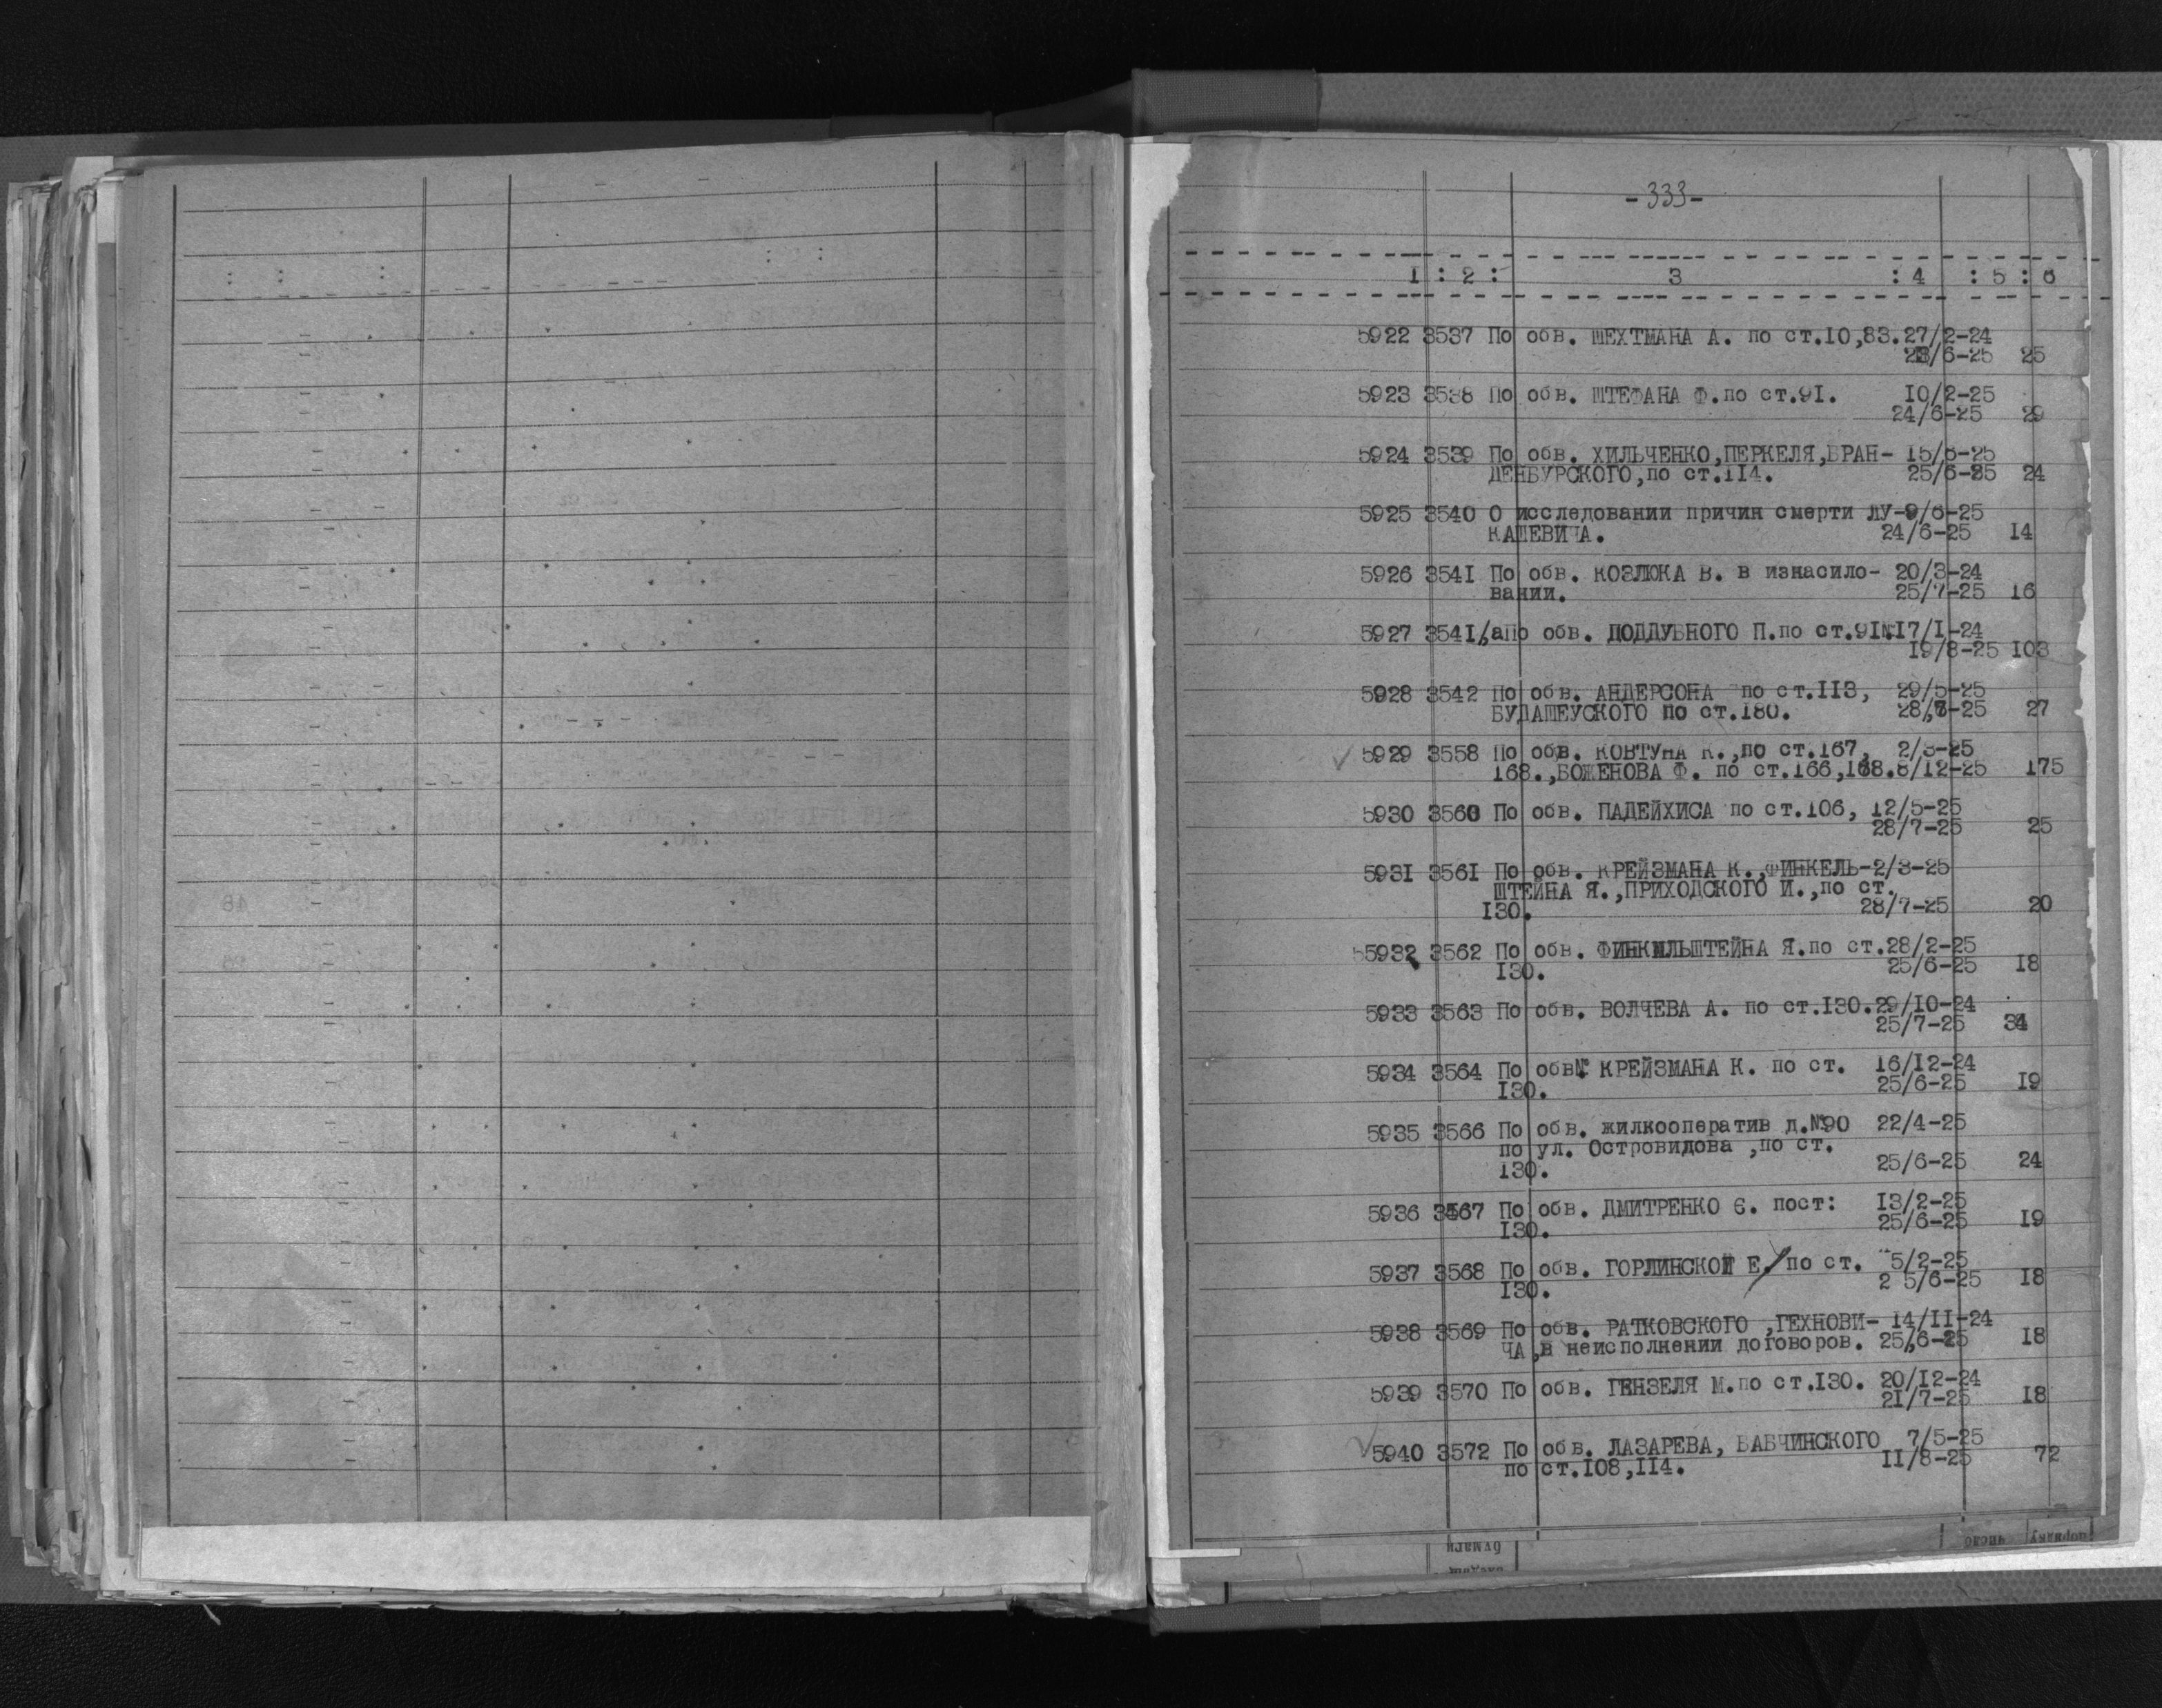 -333-
1 : 2 : 3 : 4 : 5 : 6
5922 3537 По обв. ШЕХТМАНА А. по ст.10,83. 27/2-24
23/6-25 25
5923 3538 По обв. ШТЕФАНА Ф.по ст.91. 10/2-25
24/6-25 29
5924 3539 По обв. ХИЛЬЧЕНКО,ПЕРКЕЛЯ,БРАН- 15/6-25
ДЕНБУРСКОГО,по ст.114. 25/6-25 24
5925 3540 О исследовании причин смерти ЛУ-9/6-25
КАШЕВИЧА. 24/6-25 14
5926 3541 По обв. КОЗЛЮКА В. в изнасило- 20/3-24
вании. 25/7-25 16
5927 3541/а По обв. ПОДДУБНОГО П.по ст.91. 17/1-24
19/8-25 103
5928 3542 По обв. АНДЕРСОНА по ст.113, 29/5-25
БУДАШЕУСКОГО по ст.180. 28/7-25 27
5929 3558 По обв. КОВТУНА К.,по ст.167, 2/3-25
168.,БОЖЕНОВА Ф. по ст.166,168. 8/12-25 175
5930 3560 По обв. ПАДЕЙХИСА по ст.106, 12/5-25
28/7-25 25
5931 3561 По обв. КРЕЙЗМАНА К.,ФИНКЕЛЬ-2/3-25
ШТЕЙНА Я.,ПРИХОДСКОГО И.,по ст.
130. 28/7-25 20
5932 3562 По обв. ФИНКИЛЬШТЕЙНА Я.по ст.28/2-25
130. 25/6-25 18
5933 3563 По обв. ВОЛЧЕВА А. по ст.130.29/10-24
25/7-25 34
5934 3564 По обв. КРЕЙЗМАНА К. по ст. 16/12-24
130. 25/6-25 19
5935 3566 По обв. жилкооператив д.№90 22/4-25
по ул. Островидова ,по ст.
130. 25/6-25 24
5936 3567 По обв. ДМИТРЕНКО Є. пост: 13/2-25
130. 25/6-25 19
5937 3568 По обв. ГОРЛИНСКОЙ Е. по ст. 5/2-25
130. 2 5/6-25 18
5938 3569 По обв. РАТКОВСКОГО ,ГЕХНОВИ- 14/11-24
ЧА,в неисполнении договоров. 25/6-25 18
5939 3570 По обв. ГЕНЗЕЛЯ М.по ст.130. 20/12-24
21/7-25 18
5940 3572 По обв. ЛАЗАРЕВА, БАБЧИНСКОГО 7/5-25
по ст.108,114. 11/8-25 72
бумаги число порядку